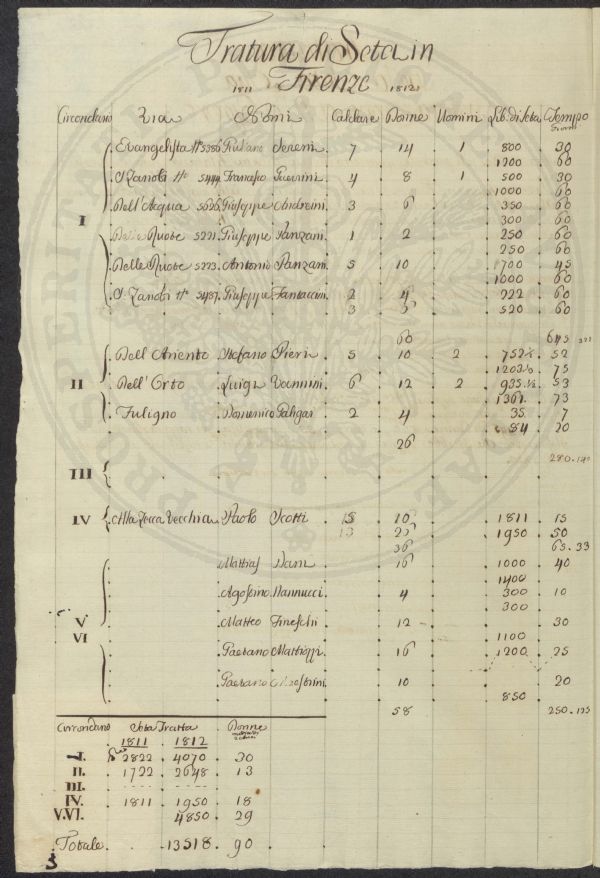 Tratura di Seta in
Firenze
1811 1812
Circondario Via Nomi Caldare Donne Uomini Lib. di Seta Tempo
Giorni
Evangelista N° 5386 Giuliano Sereni 7 14 1 800 30
1200 60
S. Zanobi N° 5444 Francesco Guerrini 4 8 1 500 30
1000 60
Dell'Acqua 5626 Giuseppe Andreini 3 6 350 60
300 60
I
Delle Ruote 5221 Giuseppe Panzani 1 2 250 60
250 60
Delle Ruote 5223 Antonio Panzani 5 10 1700 45
1000 60
S. Zanobi N° 5437 Giuseppe Fantaccini 2 4 222 60
3 5 520 60
60 645
Dell'Ariento Stefano Pieri 5 10 2 752½ 52
1203½ 75
II Dell'Orto Luigi Vannini 6 12 2 935½ 53
1361 73
Fuligno Domenico Paligai 2 4 35 7
84 20
26
280.140
III
IV Alla Zecca Vecchia Paolo Scotti 15 10 1811 15
13 1950 50
36 65.33
Mattias Nani 16 1000 40
1400
Agostino Nannucci 4 300 10
300
V Matteo Fineschi 12 30
VI 1100
Gaetano Mattiozzi 16 1200 25
Gaetano 10 20
850
58 250.125
Circondario Seta Tratta Donne
1811 1812
I. 2822 4070 30
II. 1722 2648 13
III.
IV. 1811 1950 18
V.VI. 4850 29
Totale 13518 90
3
PROSPERITATI PUBLICAE